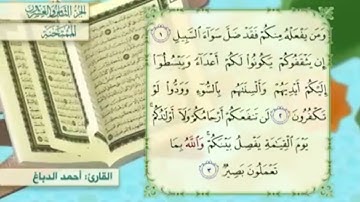 الجزء الثامن والعشرون
الممتحنة
وَمَن يَفْعَلْهُ مِنكُمْ فَقَدْ ضَلَّ سَوَآءَ ٱلسَّبِيلِ ١
إِن يَثْقَفُوكُمْ يَكُونُوا۟ لَكُمْ أَعْدَآءً وَيَبْسُطُوٓا۟
إِلَيْكُمْ أَيْدِيَهُمْ وَأَلْسِنَتَهُم بِٱلسُّوٓءِ وَوَدُّوا۟ لَوْ
تَكْفُرُونَ ٢ لَن تَنفَعَكُمْ أَرْحَامُكُمْ وَلَآ أَوْلَٰدُكُمْ ۚ
يَوْمَ ٱلْقِيَٰمَةِ يَفْصِلُ بَيْنَكُمْ ۚ وَٱللَّهُ بِمَا
تَعْمَلُونَ بَصِيرٌ ٣
القارئ: أحمد الدباغ